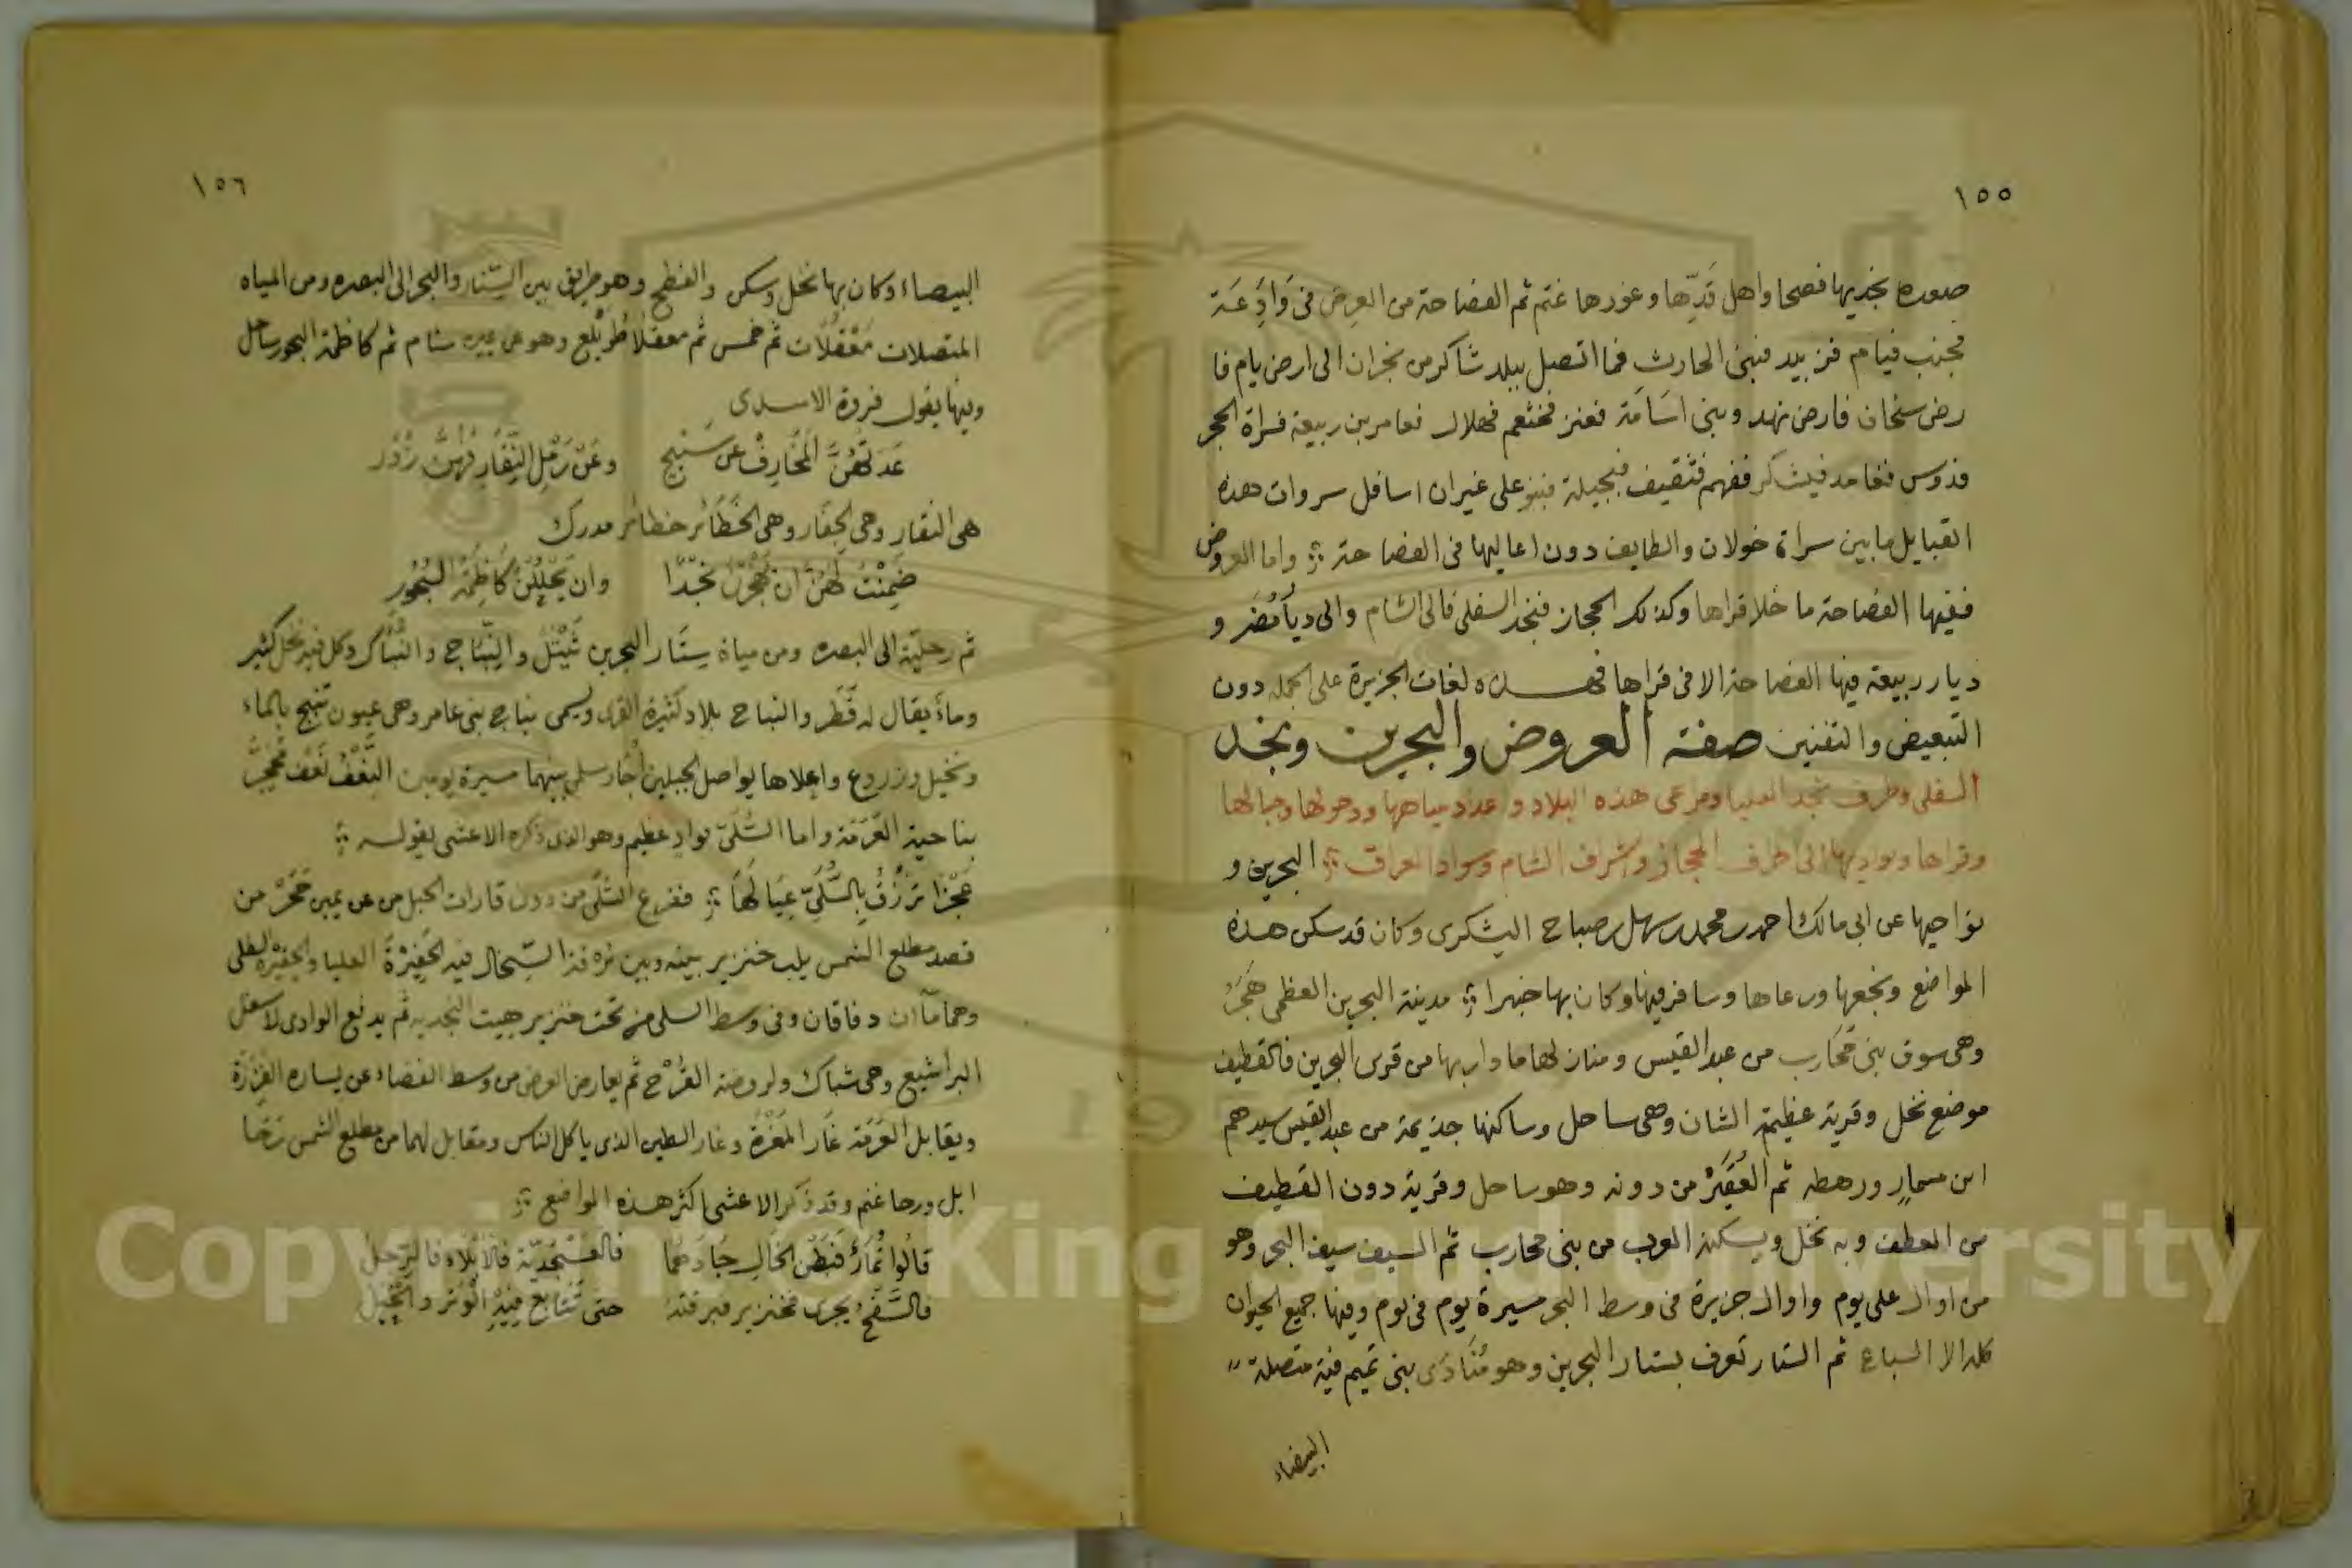 ١٥٥
صعده نجديها فصحا واهل قدّها وغورها غتم ثم الفصاحة من العرض فى وادعة
فجنب فيام فزبيد فبنى الحارث فما اتصل ببلد شاكر من نجران الى ارض يام فا
رض سنحان فارض نهد وبنى اسامة فعنز فخثعم فهلال فعامر بن ربيعة فسراة الحجر
فدوس فغامد فيشكر ففهم فثقيف فبجيلة فبنو على غيران اسافل سروات هذه
القبايل ما بين سراة خولان والطايف دون اعاليها فى الفصاحة واما العروض
ففيها الفصاحة ما خلا قراها وكذلك الحجاز فنجد السفلى فالى الشام والى ديار مُضَر و
ديار ربيعة فيها الفصاحة الا فى قراها فهذه لغات الجزيرة على الجمله دون
التبعيض والتفنين صفة العروض والبحرين ونجد
السفلى وطرف نجد العليا ومرعى هذه البلاد وعدد مياهها ودحولها وجبالها
وقراها وبواديها الى اطراف الحجاز واشراف الشام وسواد العراق البحرين و
نواحيها عن ابى مالك احمد بن محمد بن سهل بن صباح اليشكرى وكان قد سكن هذه
المواضع ونجعها ورعاها وسافر فيها وكان بها خبيرا مدينة البحرين العظمى هَجَرُ
وهى سوق بنى مُحَارب من عبد القيس ومنازلها ما دار بها من قرى البحرين فالقطيف
موضع نخل وقرية عظيمة الشان وهى ساحل وساكنها جذيمة من عبد القيس سيدهم
ابن مسمار ورهطه ثم العُقَيْر من دونه وهو ساحل وقرية دون القطيف
من العطف وبه نخل ويسكنه العرب من بنى محارب ثم السيف سيف البحر وهو
من اوال على يوم واوال جزيرة فى وسط البحر مسيرة يوم فى يوم وفيها جميع الحيوان
كله الا السباع ثم الستار تعرف بستار البحرين وهو مُنادى بنى تميم فيه متصلة
البيضاء
١٥٦
البيضاء وكان بها نخل وسكن والفطح وهو طريق بين السِّتار والبحر الى البصره ومن المياه
المتصلات مَعْقُلات ثم خمس ثم معقلا طُوَيْلع وهو عن شام ثم كاظمة البحور ساحل
وفيها يقول فروة الاسدى
عَدَتْهُنَّ المَخَارِفُ عن سَنِيحٍ وعَنْ رَمْلِ النِّقَارِ فَهُنَّ زُوْر
هى النقار وهى الجِفَار وهى الخَطَائر خطائر مدرك
ضَمِنْتُ لَهُنَّ ان نَجْدًا وان كَاظِمَة البُحُورِ
ثم رحلية الى البصره ومن مياة سِتَار البحرين ثَيْتَل والنِّبَاج والنِّبَاك وكل فيه نخل كثير
وماء يقال له قَطَر والنباح بلاد كثيرة القرى ويسمى نباج بنى عامر وهى عيون تنبج بالماء
ونخيل وزروع واعلاها يواصل الجبلين اجا وسلمى بينهما مسيرة يومين النَّعْف نَعْف مُحَجَّر
بناحية العَرَمَة واما السُّلَىّ فوادٍ عظيم وهو الذى ذكره الاعشى بقوله
عَجْزَا تَرْزُقُ بِالسُّلَىّ عِيَالَهَا ففرع السُّلَّى من دون قارات الحبل من عن يمين حَجْر من
قصد مطلع الشمس يلب خنزير بينه وبين نزه قد السِّخَال فيه الحَفِيْرَةُ العليا والحفيرة السفلى
وهما ماان دفاقان وفى وسط السلى من تحت خنزير جيت النجديه ثم يدفع الوادى لاسفل
البراشيع وهى شباك ولروضة الفُرُح ثم يعارض العرض من وسط الفضاء عن يساره الفِزَرَة
ويقابل العَرَمَة غَار المَغَرَة وغار الطين الذى ياكل الناس ومقابل لهما من مطلع الشمس
ابل ورحا غنم وقد ذكر الاعشى اكثر هذه المواضع
قالُوا ثُمَارٌ فَبَطْنُ الخَالِ جَادَهُمَا فالعَسْجَدِيّة فَالاَبْلَاء فالرِّجَلُ
فالسَّفْحُ يجرى فخنزير فبرقته حتى تَتَابَعَ فِيْهِ الْوَتْر والحُبَلُ